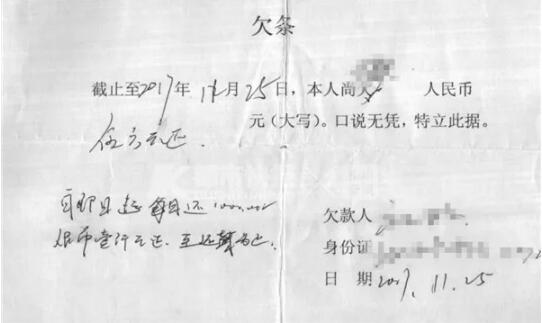 欠条
截止至2017年11月25日，本人尚欠 人民币
伍万元正. 元（大写）。口说无凭，特立此据。
自即日起 每月还 1000.00
人民币壹仟元正. 至还 为止.
欠款人
身份证
日 期 2017.11.25